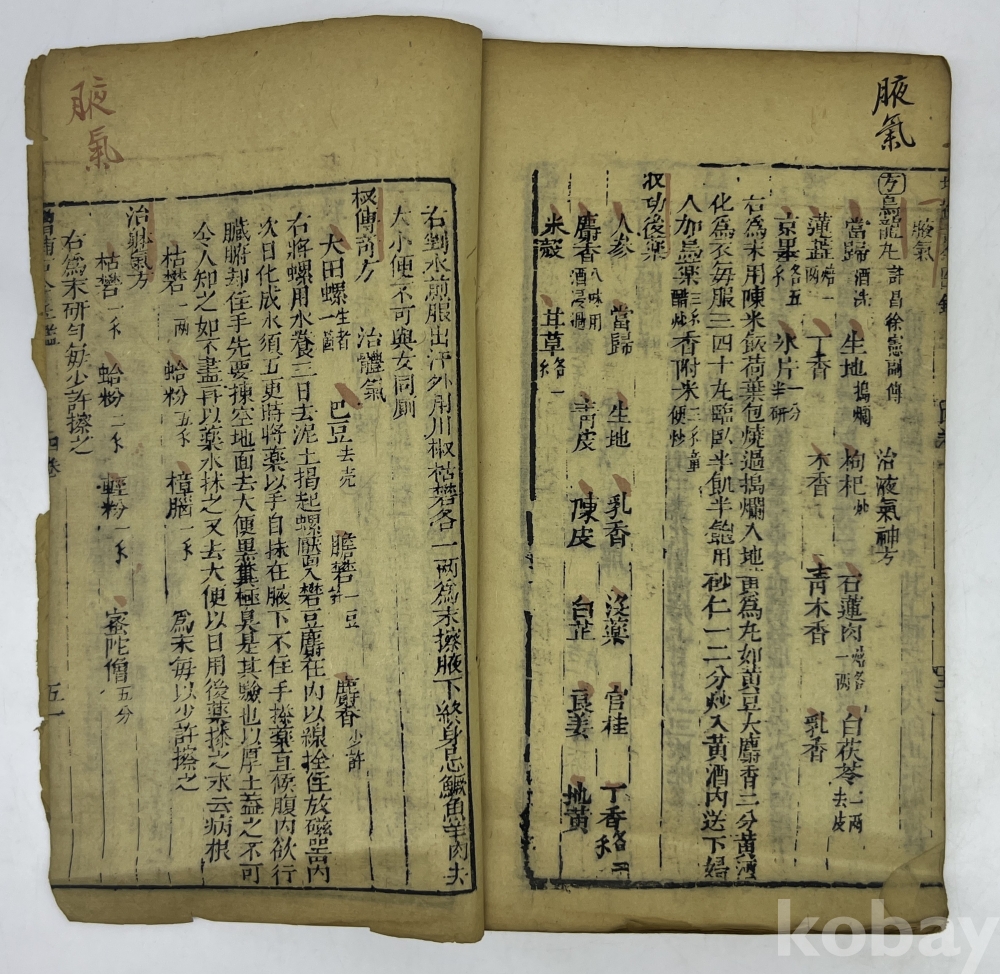 腋氣
腋氣
㊄烏龍丸 許昌徐憲副傳 治液氣神方
當歸 酒洗 生地 搗爛 枸杞 炒 石蓮肉 一兩 白茯苓 二兩 去皮
蓮蕋 焙一兩 丁香 木香 青木香 乳香
京墨 各五 氷片 一分半研
右為末用陳米飯荷葉包燒過搗爛入地黃為丸如黃豆大麝香二分黃酒
化為衣每服三四十九臨臥半飢半飽用砂仁一二分炒入黃酒內送下婦
人加烏藥 三錢醋炒 香附米 三錢便炒
收功後藥
人參 當歸 生地 乳香 沒藥 官桂 丁香 各二錢
麝香 八味用酒浸過 青皮 陳皮 白芷 良姜 地黃
米殼 甘草 各一
右剉水煎服出汗外用川椒枯礬各一兩為末擦腋下終身忌鱖魚羊肉夫
大小便不可與女同厠
極傳奇方 治體氣
大田螺 一箇生者 巴豆 去壳 膽礬 一豆許 麝香 少許
右將螺用水養三日去泥土揭起螺靨入礬豆麝在內以線拴住放磁器內
次日化成水須五更時將藥以手自抹在腋下不住手擦藥直候腹內欲行
臟腑却住手先要揀空地面去大便黑糞極臭是其驗也以厚土蓋之不可
令人知之如不盡再以藥水抹之又去大便以日用後藥搽之永云病根
枯礬 一兩 蛤粉 五錢 樟腦 一錢 為末每以少許擦之
治躰氣方
枯礬 一錢 蛤粉 二錢 輕粉 一錢 蜜陀僧 五分
右為末研勻每少許擦之
四卷
五一
kobay